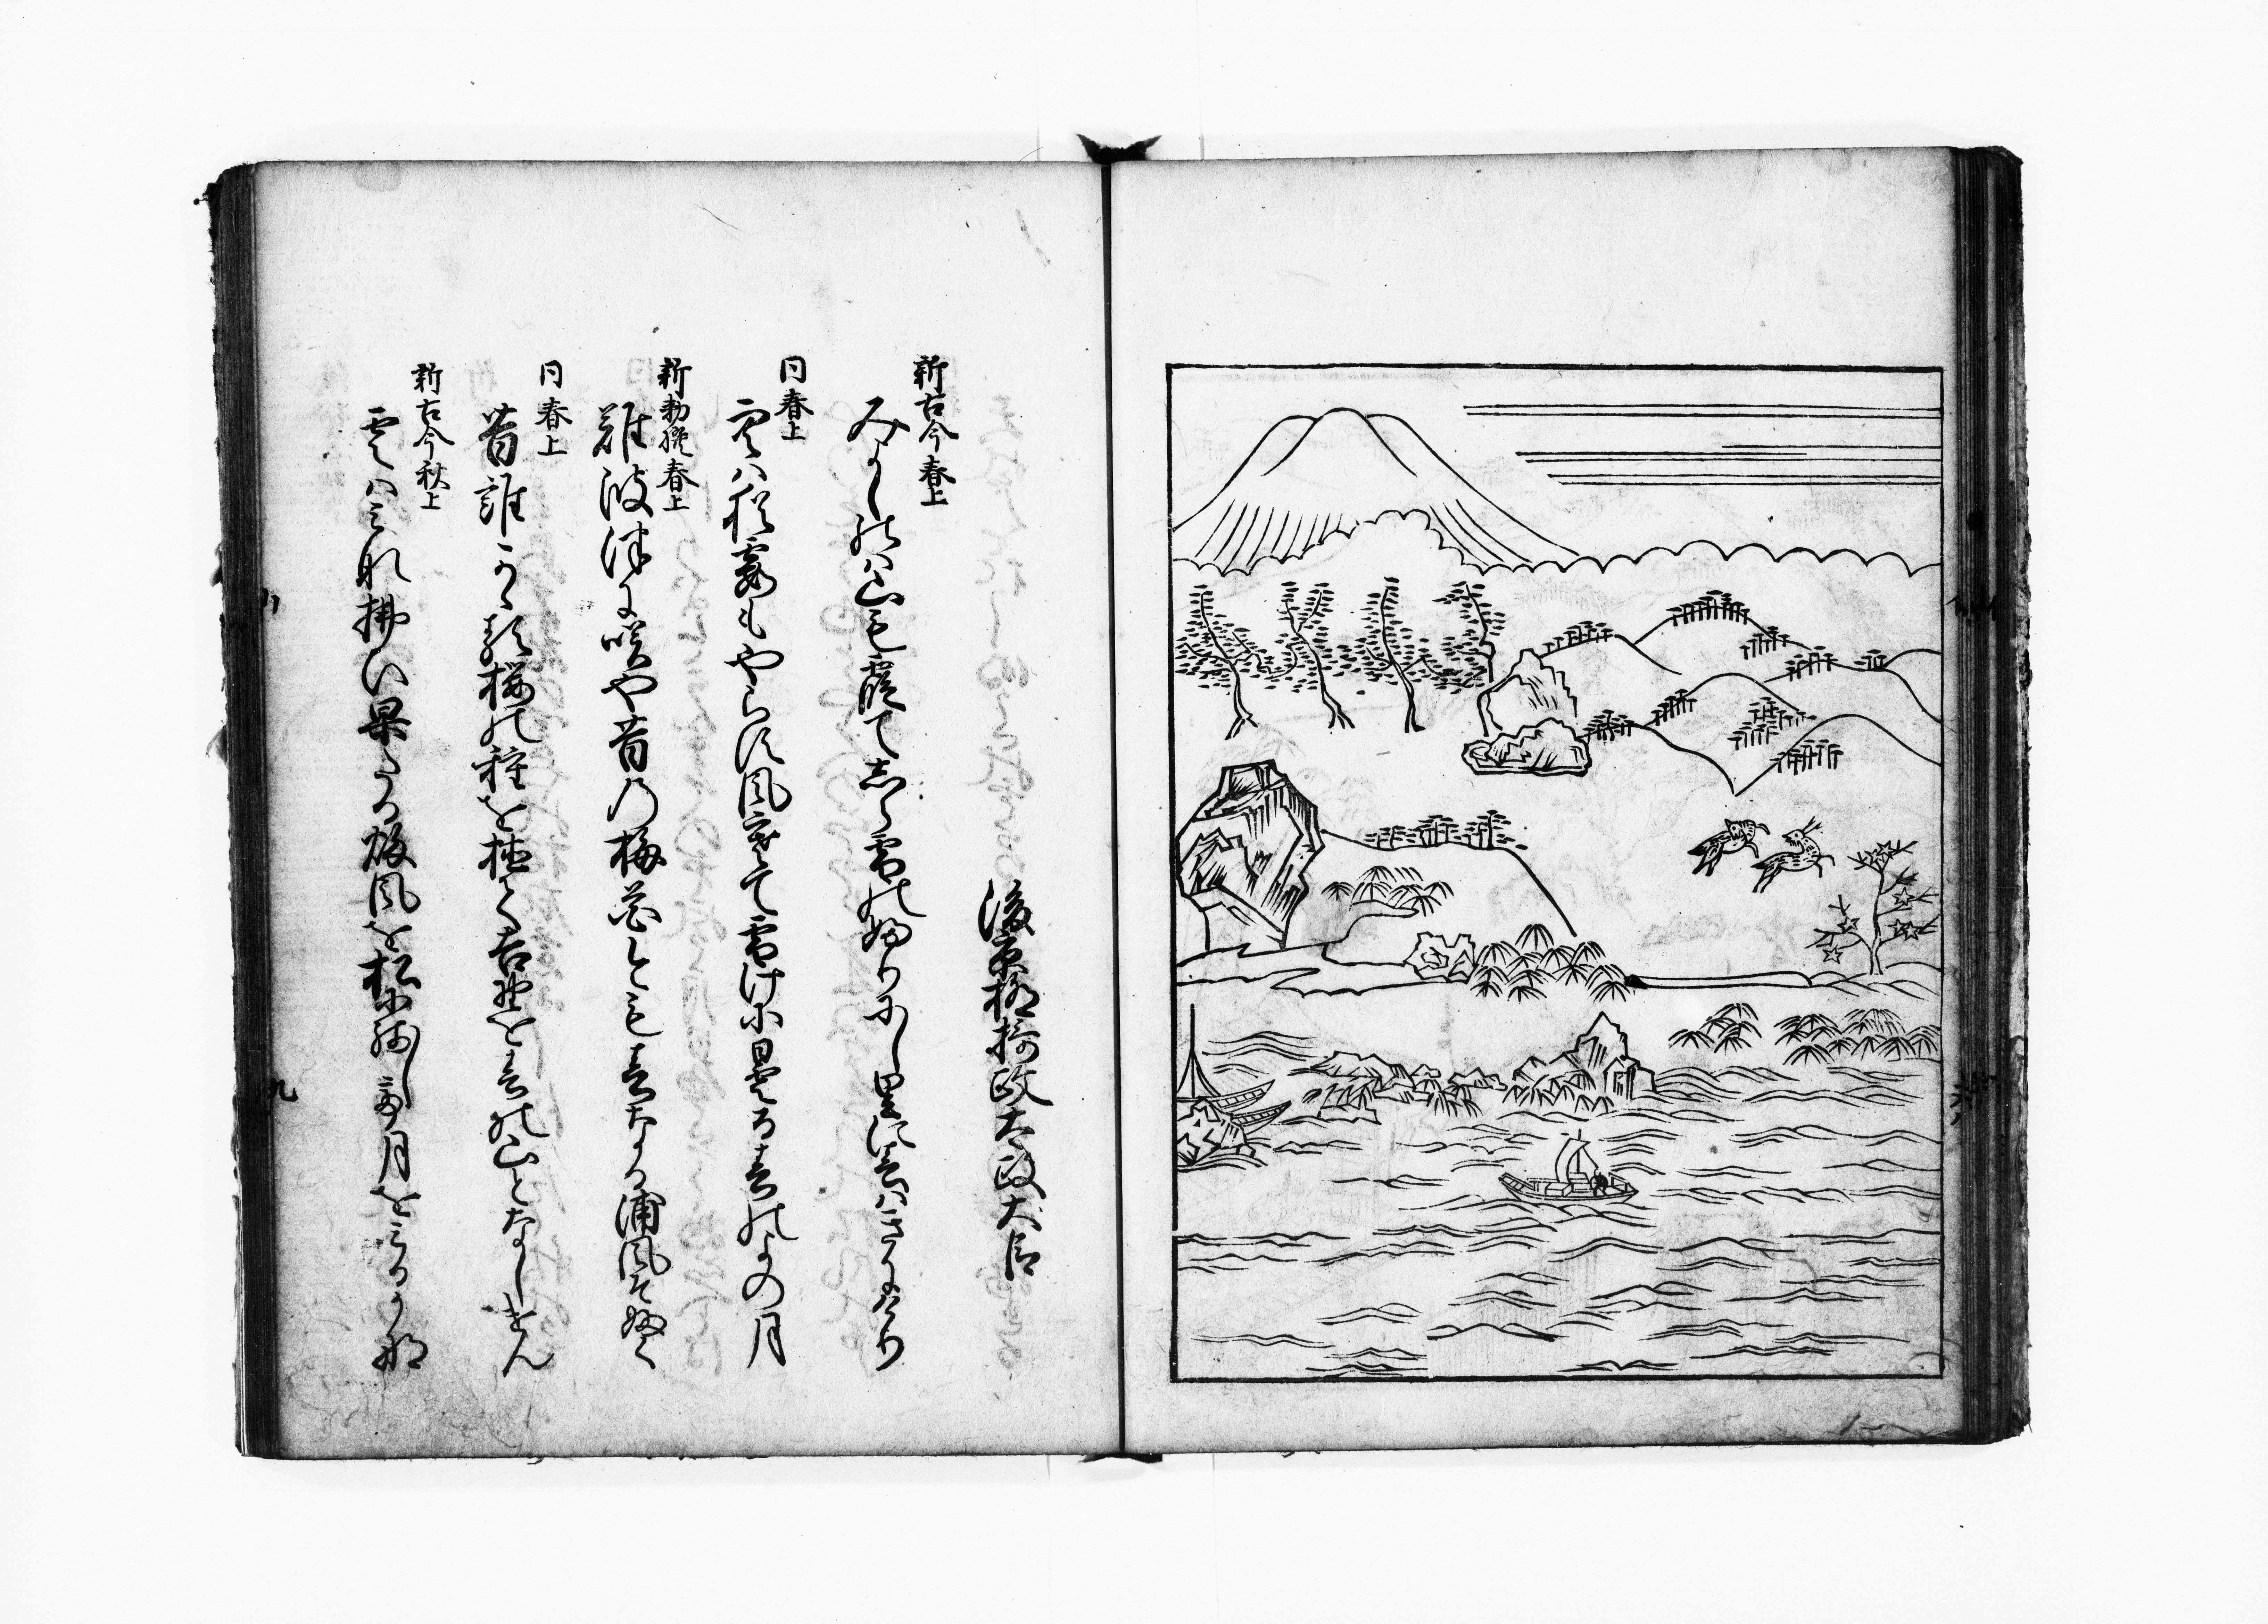 後京極摂政太政大臣
新古今春上
みよし野は山も霞て志ら雪のふりにし里に春はきにけり
同春上
空は猶霞もやらす風寒て雪けに曇る春のよの月
新勅撰春上
難波津に咲や昔の梅花今も春なる浦風そ吹
同春上
昔誰かゝる桜の種を植て吉野を春の山となしけん
新古今秋上
雲はみな払ひ果たる秋風を松に残して月をみるかな